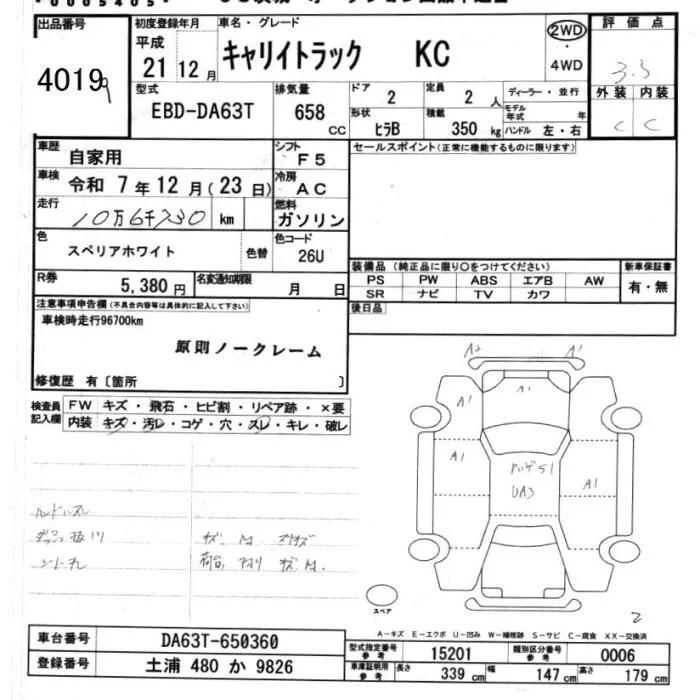 出品番号 初度登録年月 車名・グレード 2WD 評価点
4019 平成 21 12月 キャリイトラック KC ・ 4WD 3.5
型式 排気量 ドア 定員 ディーラー・並行 外装 内装
EBD-DA63T 658 cc 2 2人 モデル年式 年 C C
形状 積載
ヒラB 350kg ハンドル 左・右
車歴 自家用 シフト F5 セールスポイント(正常に機能するものに限ります)
車検 令和 7年12月(23日) 冷房 AC
走行 10万6千730 km 燃料 ガソリン
色 スペリアホワイト 色替 色コード 26U
装備品(純正品に限り○をつけてください) 新車保証書
R券 5,380円 名変通知期限 月 日
PS PW ABS エアB AW 有・無
SR ナビ TV カワ
注意事項申告欄(不具合内容等は具体的に記入して下さい) 後日品
車検時走行96700km
原則ノークレーム
修復歴 有〔箇所 〕
検査員記入欄 FW キズ・飛石・ヒビ割・リペア跡・×要
内装 キズ・汚レ・コゲ・穴・スレ・キレ・破レ
A2 A1
A1 A1
A1 A1
UA3
ハンドルスレ
スペア
2
A-キズ E-エクボ U-凹み W-補修跡 S-サビ C-腐食 XX-交換済
車台番号 DA63T-650360 型式指定番号 参考 15201 類別区分番号 参考 0006
登録番号 土浦 480 か 9826 車庫証明用 参考 長さ 339cm 幅 147cm 高さ 179cm